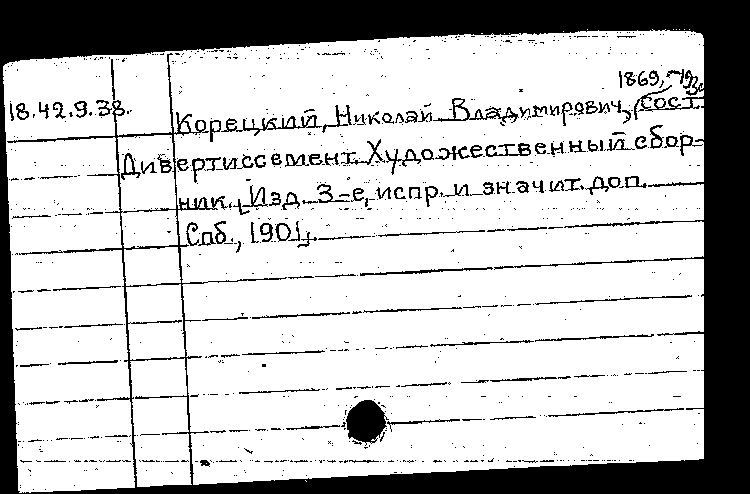 1869,
18.42.9.38.
Корецкий, Николай Владимирович, сост.
Дивертиссемент. Художественный сбор-
ник. Изд. 3-е, испр. и значит. доп.
Спб., 1901.